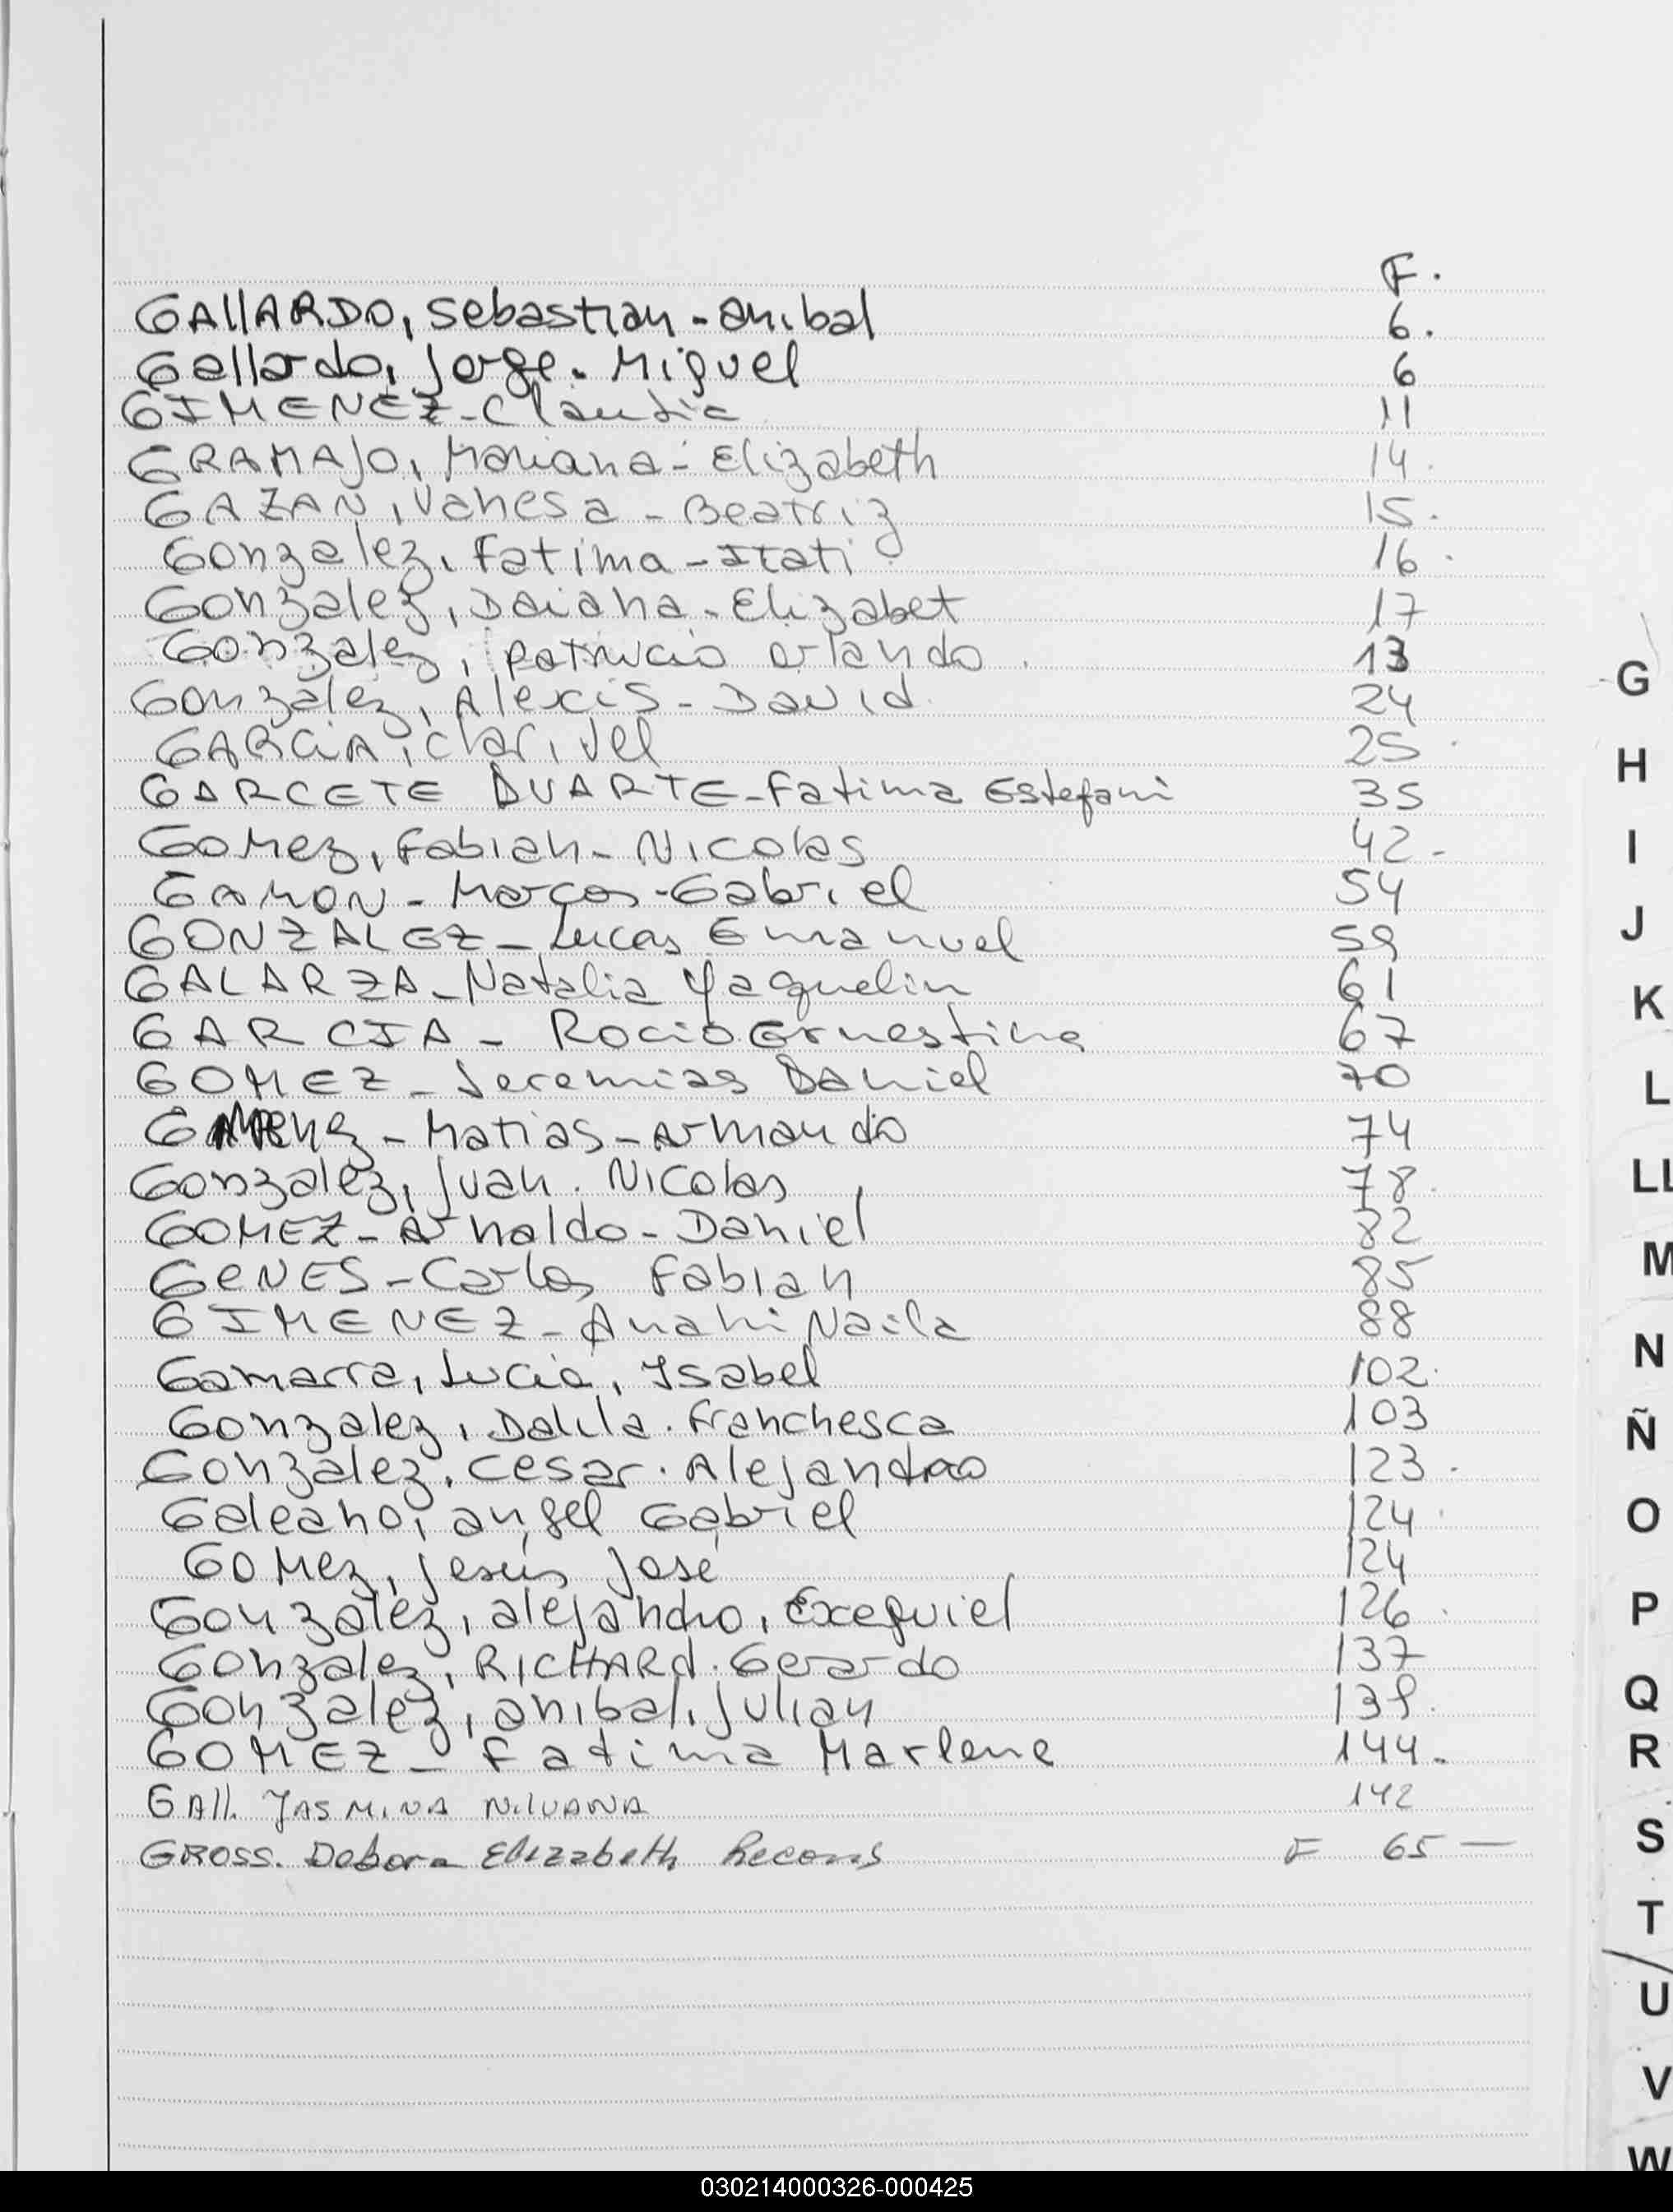 F.
GAllARDO, Sebastian - anibal 6.
Gallardo, Jorge. Miguel 6
GIMENEZ - Claudia 11
GRAMAJO, Mariana - Elizabeth 14.
GAZAN, Vanesa - Beatriz 15.
Gonzalez, Fatima - Itati 16.
Gonzalez, Daiana - Elizabet 17
Gonzalez, Patricio orlando. 13
Gonzalez, Alexis - David 24
GARCIA, Clarivel 25
GARCETE DUARTE - Fatima Estefani 35
Gomez, Fabian - Nicolas 42-
GAMON - Marcos - Gabriel 54
GONZALEZ - Lucas Emanuel 59
GALARZA - Natalia Yaquelin 61
GARCIA - Rocio Ernestina 67
GOMEZ - Jeremias Daniel 70
- Matias - Armando 74
Gonzalez, Juan. Nicolas 78.
GOMEZ - Arnaldo - Daniel 82
GeNES - Carlos Fabian 85
GIMENEZ - Anahi Naila 88
Gamarra, Lucia, Isabel 102.
Gonzalez, Dalila. Franchesca 103
Gonzalez. Cesar. Alejandro 123.
Galeano, angel Gabriel 124.
GOMez, Jesús José 124
Gonzalez, alejandro, Exequiel 126.
Gonzalez, RICHARd. Gerardo 137
Gonzalez, anibal, Julian 138.
GOMEZ - Fatima Marlene 144.
GAll. YASMINA 142
GROSS. Debora Elizabeth Recons F 65 —
G
H
I
J
K
L
LL
M
N
Ñ
O
P
Q
R
S
T
U
V
W
030214000326-000425